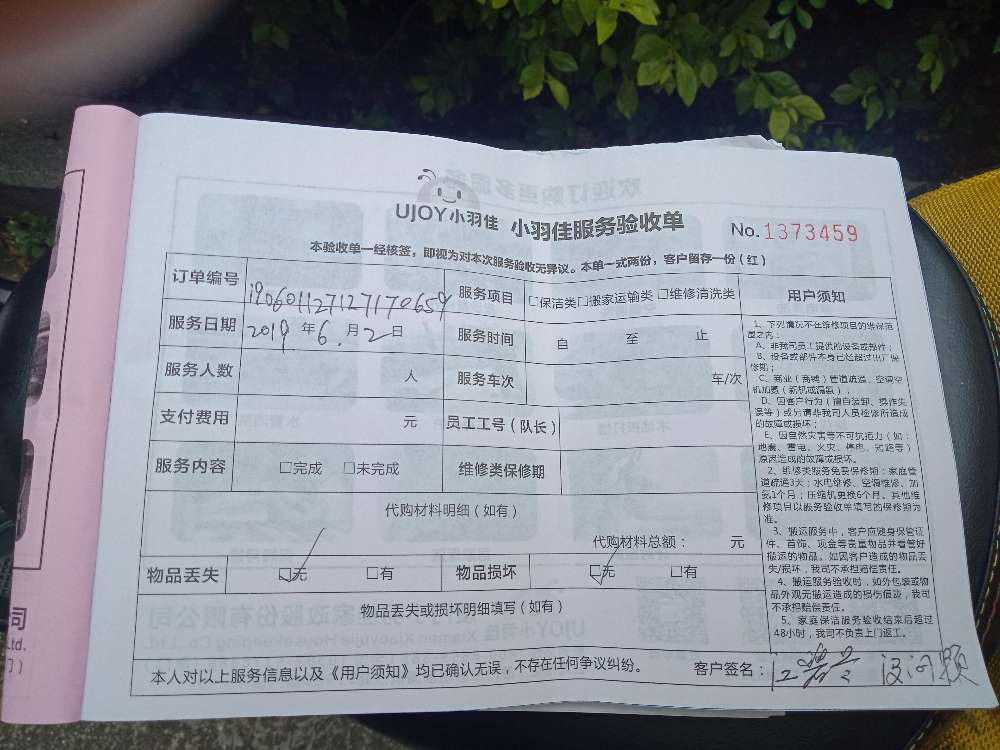 UJOY小羽佳 小羽佳服务验收单
No. 1373459
本验收单一经核签，即视为对本次服务验收无异议。本单一式两份，客户留存一份（红）
订单编号 190601127127170659 服务项目 □保洁类□搬家运输类 □维修清洗类
服务日期 2019 年 6. 月 2 日 服务时间 自 至 止
服务人数 人 服务车次 车/次
支付费用 元 员工工号（队长）
服务内容 □完成 □未完成 维修类保修期
代购材料明细（如有）
代购材料总额： 元
物品丢失 □无 □有 物品损坏 □无 □有
物品丢失或损坏明细填写（如有）
本人对以上服务信息以及《用户须知》均已确认无误，不存在任何争议纠纷。 客户签名：
没问题
用户须知
1、下列情况不在维修项目的维保范
围之内：
A、非我司员工提供的设备或部件；
B、设备或部件本身已经超过出厂保
修期；
C、商业（商铺）管道疏通、空调空
机加氨（新机或漏氨）；
D、因客户行为（擅自装卸、操作失
误等）或另请非我司人员检修所造成
的故障或损坏；
E、因自然灾害等不可抗拒力（如：
地震、雷电、火灾、停电、短路等）
原因造成的故障或损坏。
2、维修类服务免费保修期：家庭管
道疏通3天；水电维修、空调维修、加
氨1个月；压缩机更换6个月。其他维
修项目以服务验收单填写的保修期为
准。
3、搬运服务中，客户应随身保管证
件、首饰、现金等贵重物品并看管好
搬运的物品。如因客户造成的物品丢
失/损坏，我司不承担赔偿责任。
4、搬运服务验收时，如外包装或物
品外观无搬运造成的损伤痕迹，我司
不承担赔偿责任。
5、家庭保洁服务验收结束后超过
48小时，我司不负责上门返工。
司
Ltd.
门）